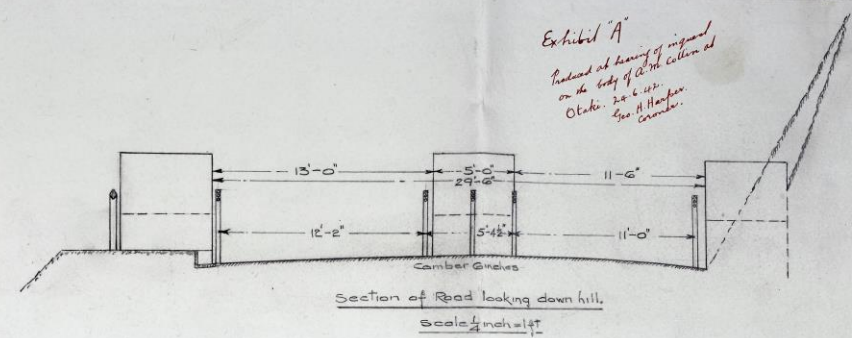 Exhibit "A"
Produced at hearing of inquest
on the body of A. M. Collen at
Otaki. 24.6.42.
Geo. H. Harper.
Coroner.
13'-0"
5'-0"
11'-6"
29'-6"
12'-2"
5'-4½"
11'-0"
Camber 6 inches
Section of Road looking down hill.
Scale ¼ inch = 1 ft